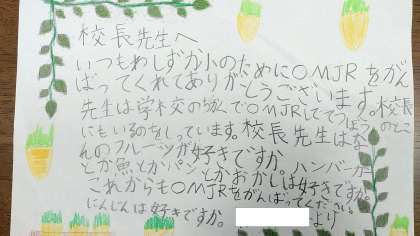 校長先生へ
いつもわしずか小のために〇MJRをがん
ばってくれてありがとうございます。校長
先生は学校の物〇MJRてつぼうのとこ
にもいるのをしっています。校長先生はな
んのフルーツが好きですか。ハンバーガー
とか魚とかパンとかおかしは好きですか。
これからも〇MJRをがんばってください。
にんじんは好きですか。
より